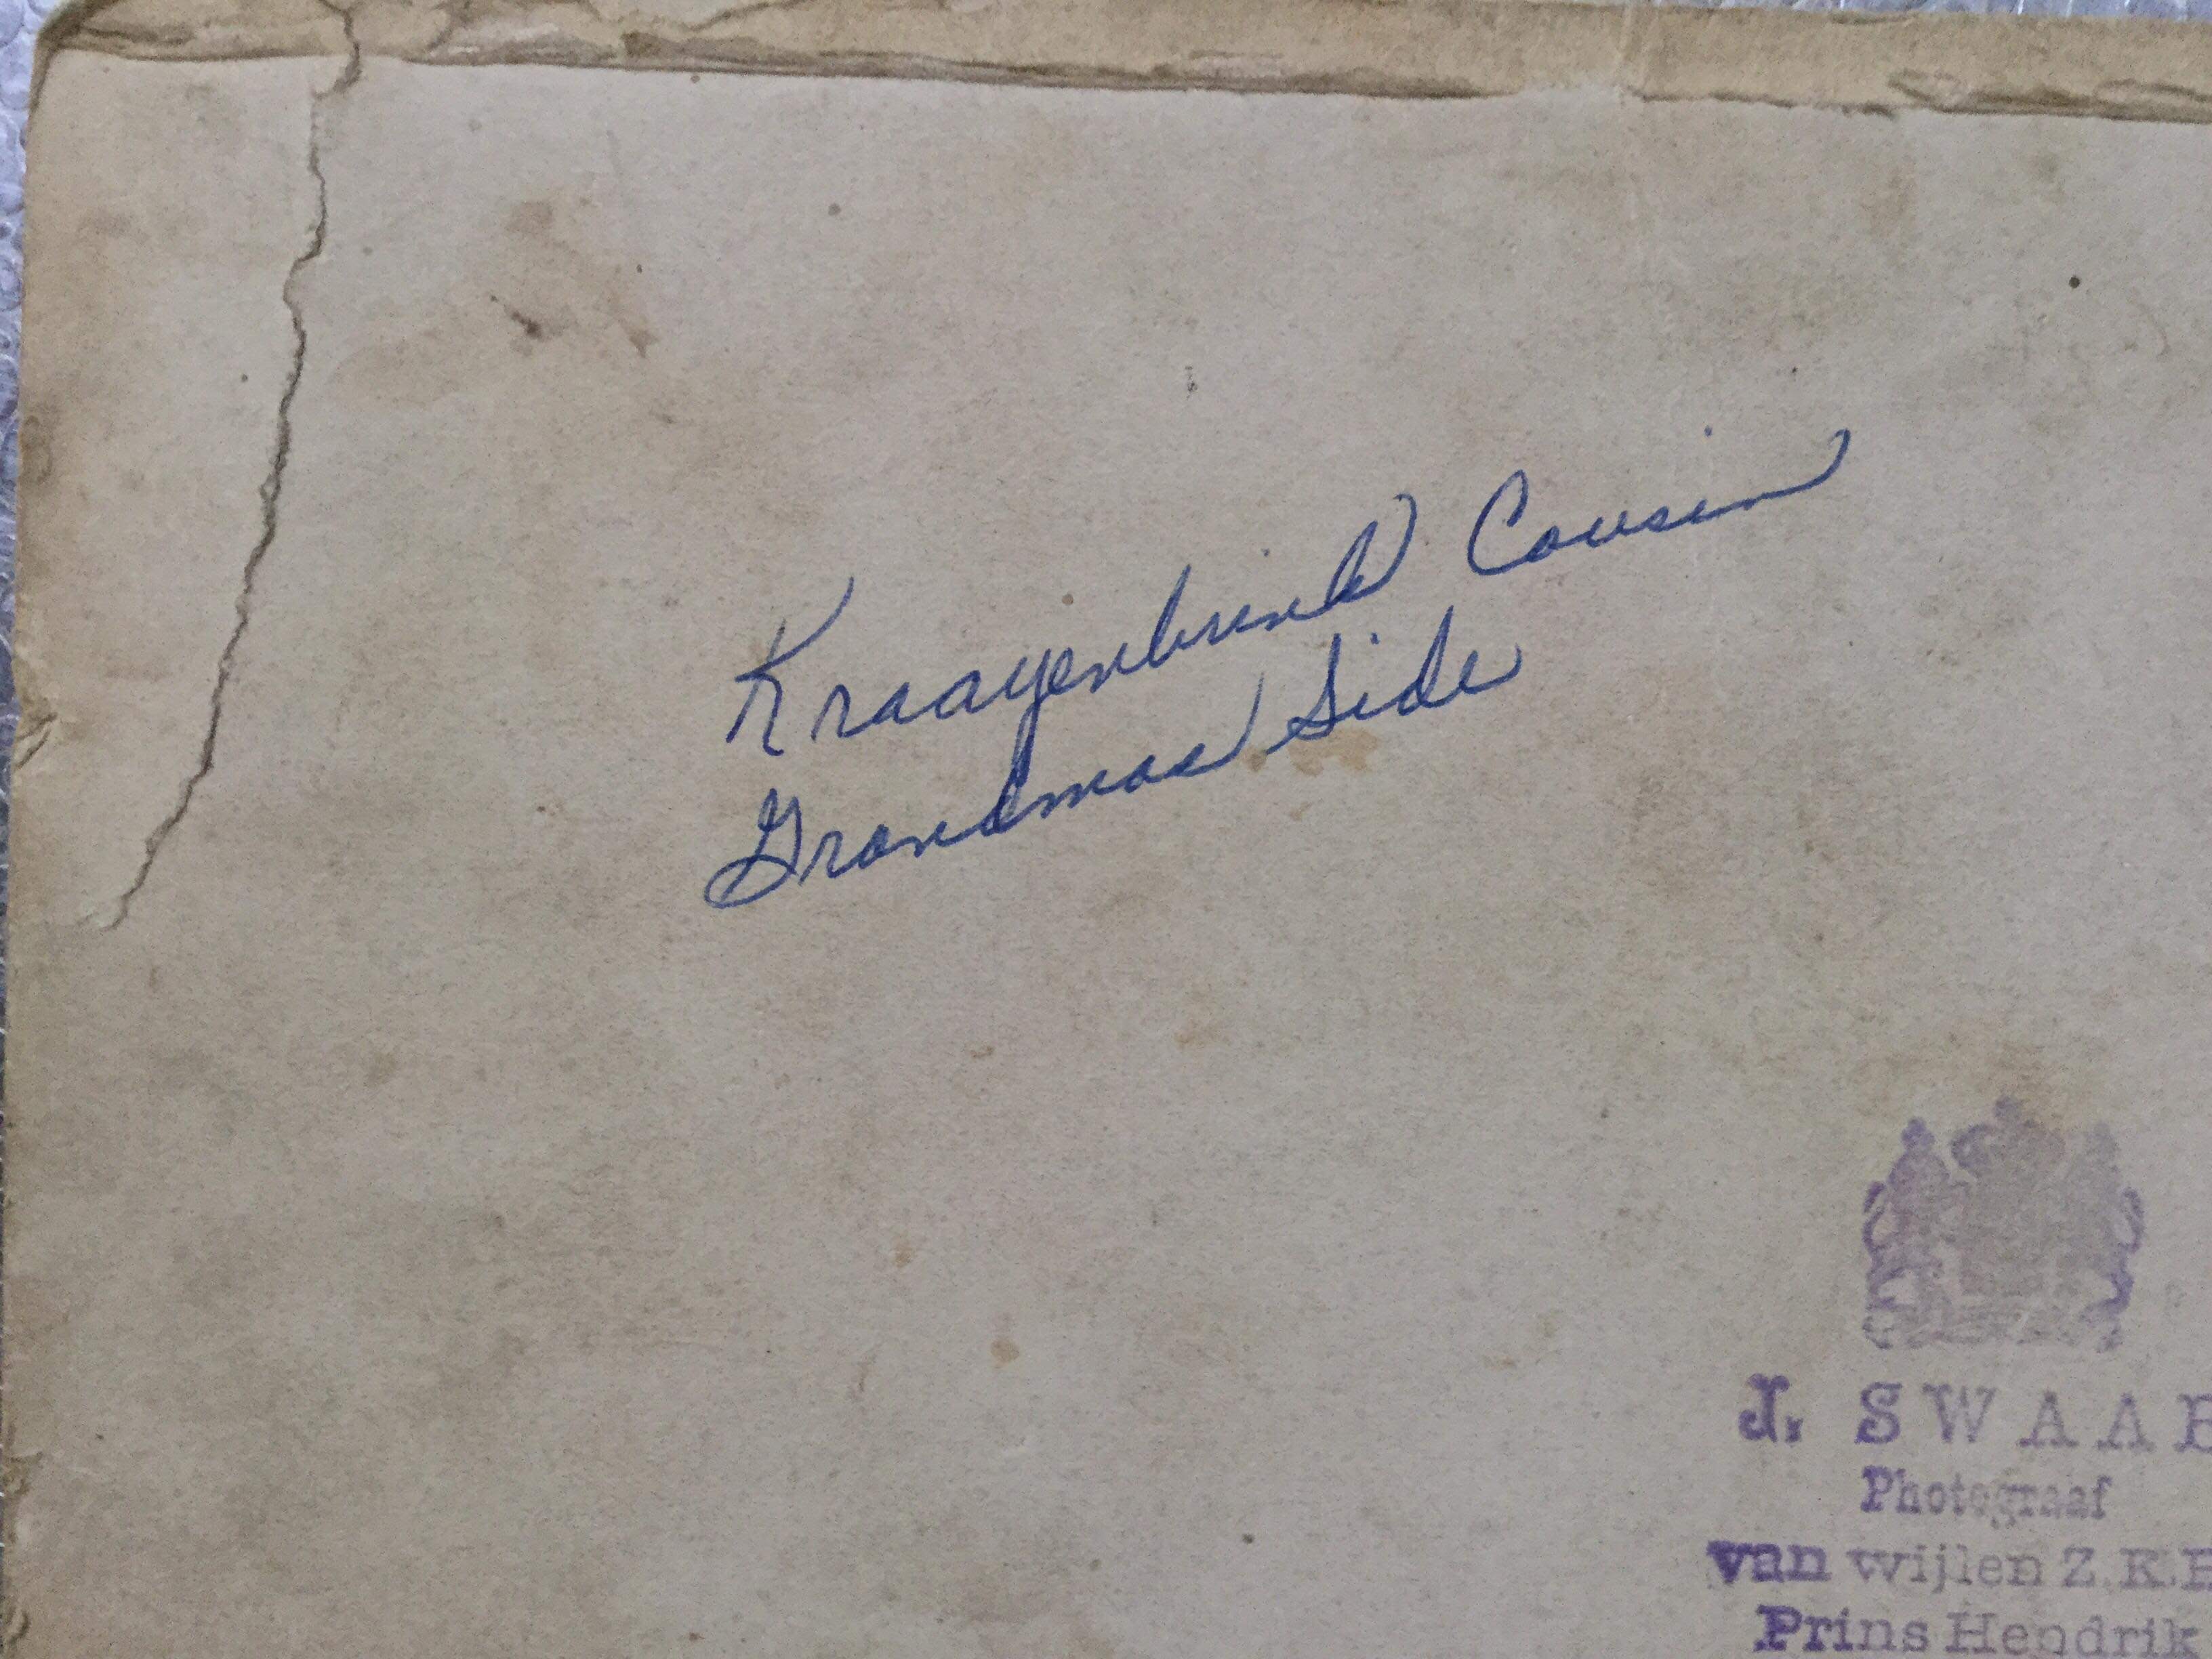 Kraayenbrink Cousin
Grandmas Side
J. SWAAB
Photograaf
van wijlen Z.K.H
Prins Hendrik